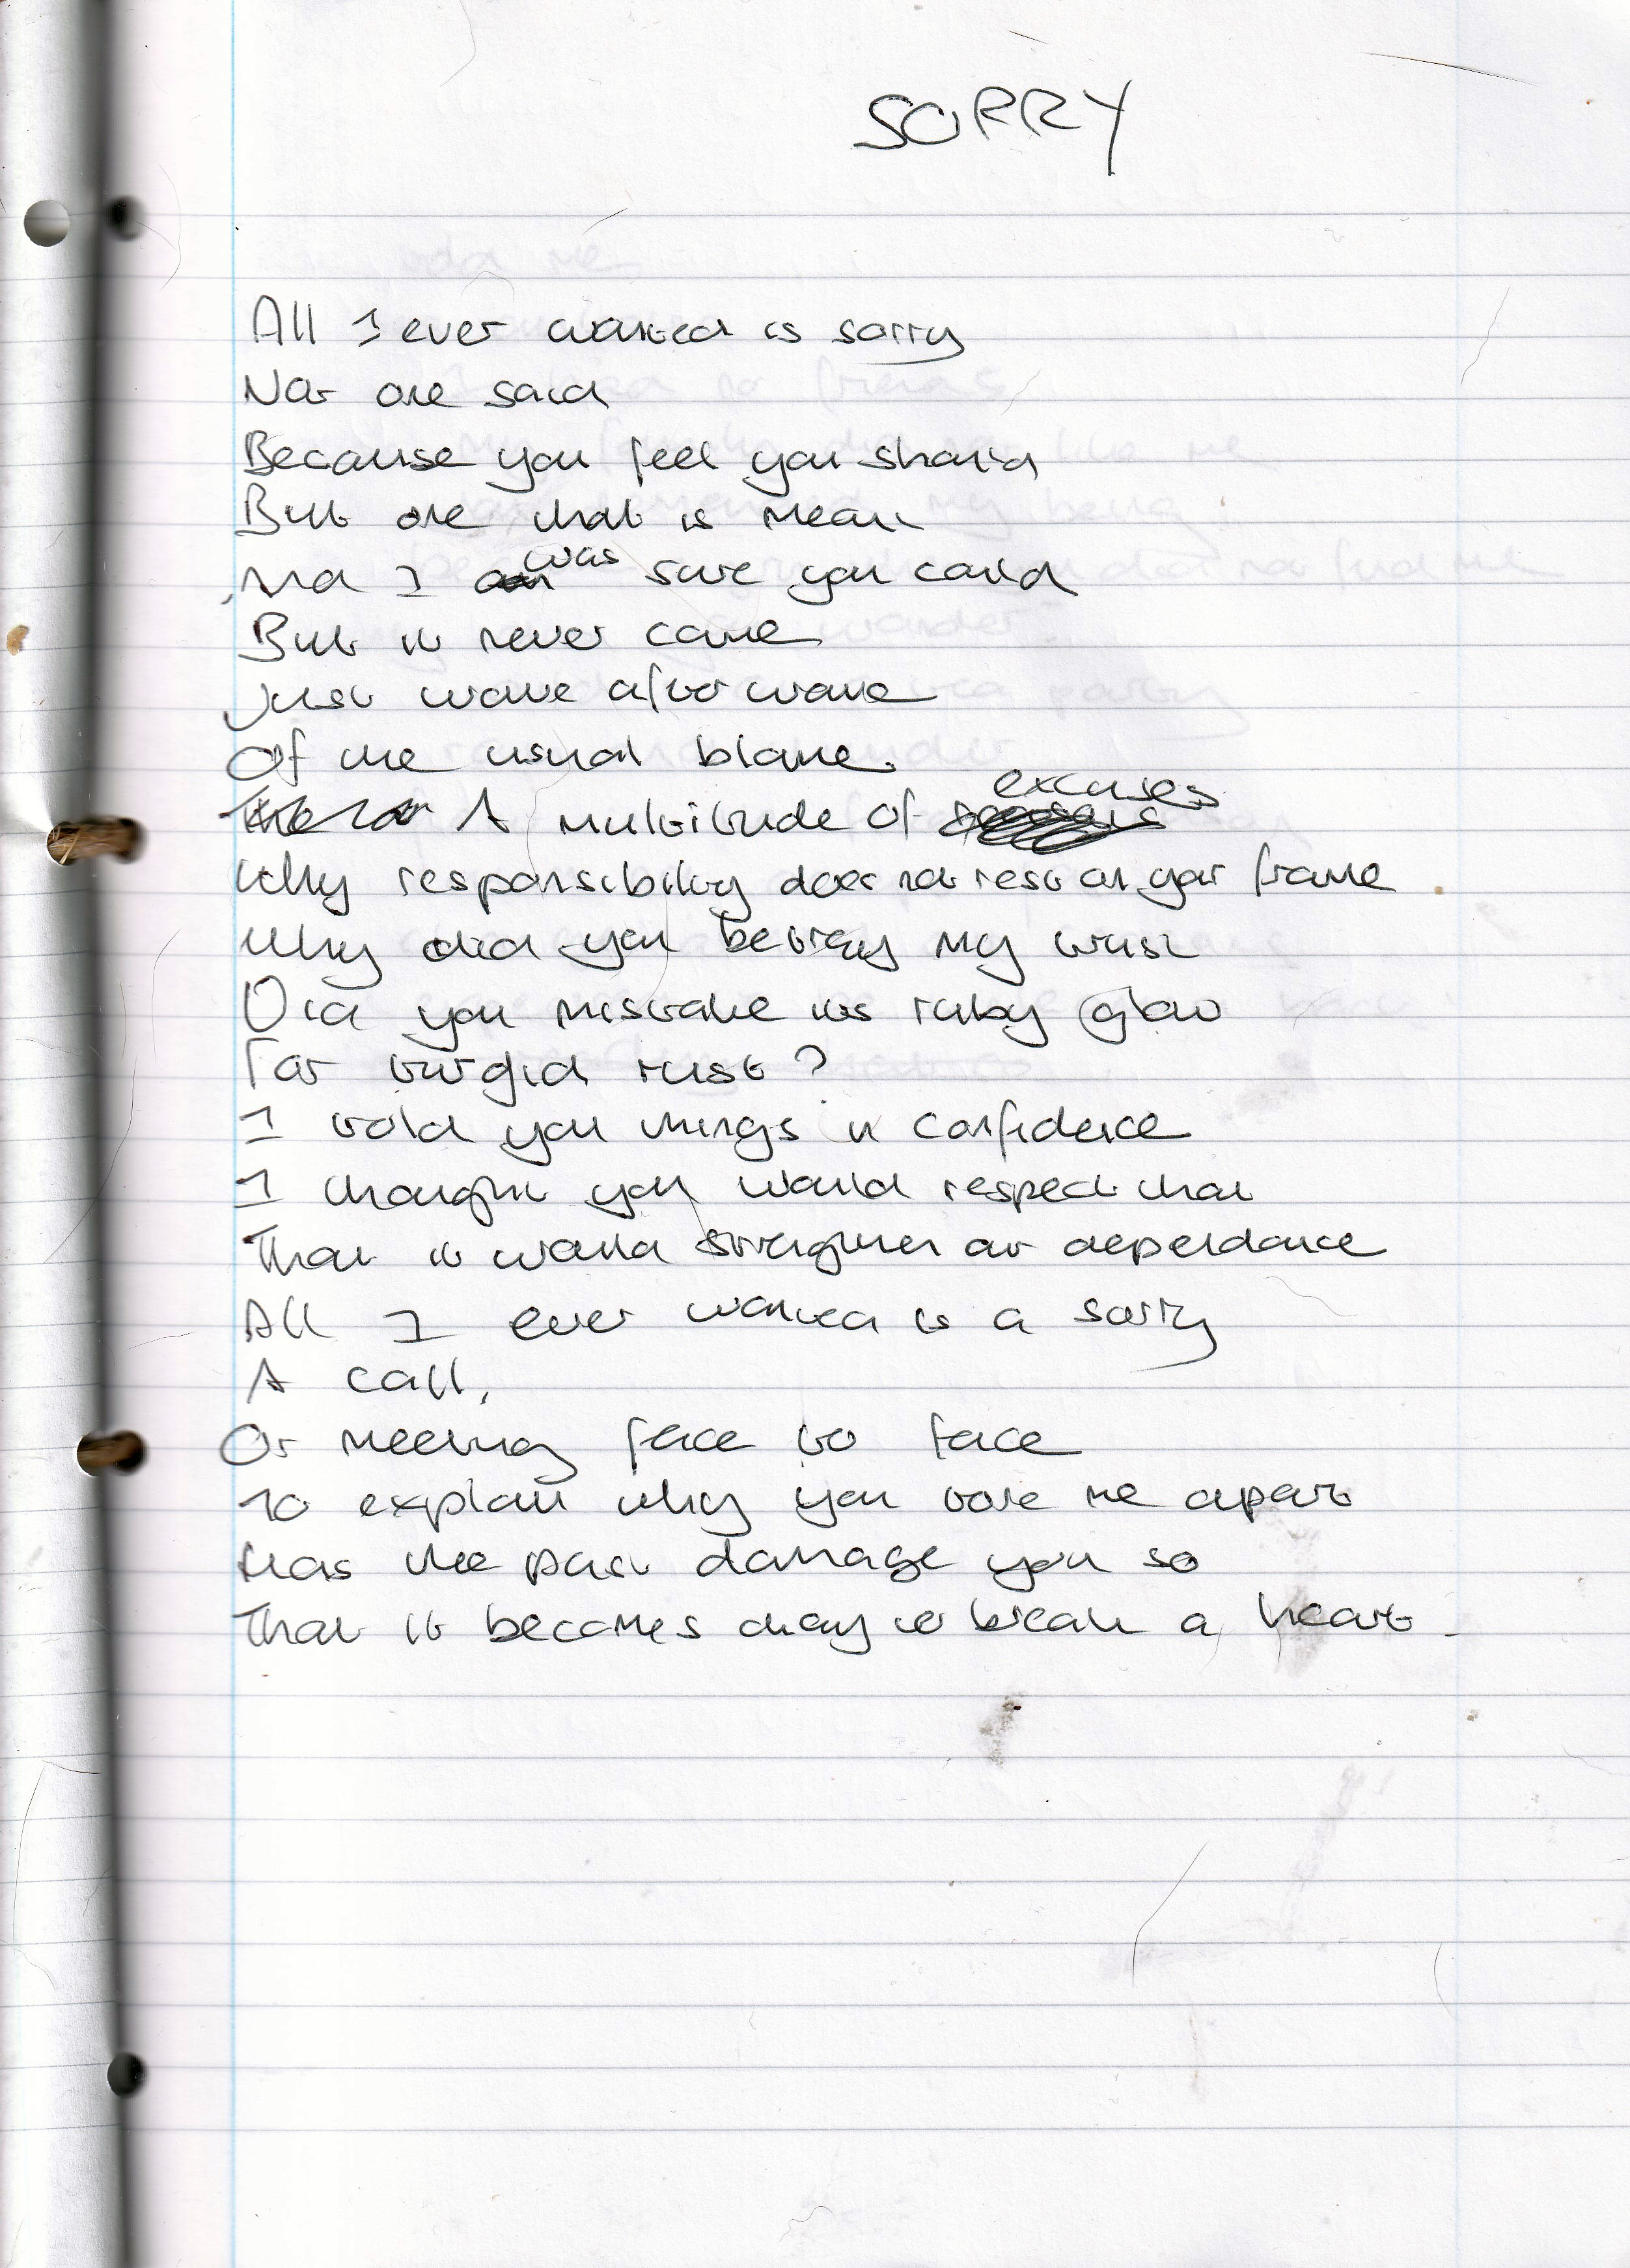 SORRY
All I ever wanted is sorry
Not one said
Because you feel you should
But one that is mean
And I was sure you could
But it never came
Just wave after wave
Of the usual blame.
A multitude of excuses
Why responsibility does not rest on your frame
Why did you betray my trust
Did you mistake its ruby glow
For turgid rust?
I told you things in confidence
I thought you would respect that
That it would strengthen our dependance
All I ever wanted is a sorry
A call,
Or meeting face to face
To explain why you tore me apart
Has the past damage you so
That it becomes okay to break a heart.